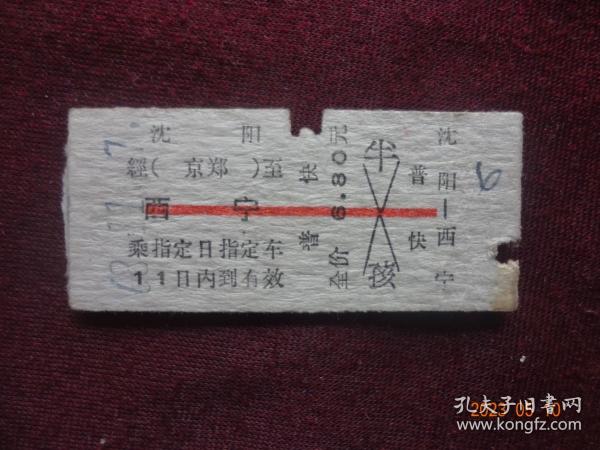 沈阳
經(京郑)至
西宁
乘指定日指定车
11日内到有效
普快
全价6.80元
半
孩
普快
沈阳—西宁
6
2023 05 10
孔夫子旧书网
www.kongfz.com